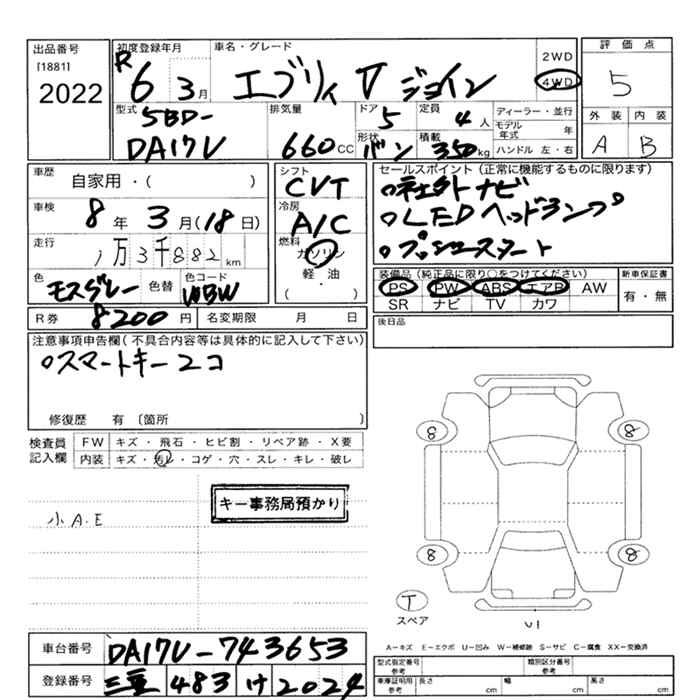 出品番号
[1881]
2022
初度登録年月
R 6 3月
車名・グレード
エブリィ ▽ ジョイン
2WD
4WD
評価点
5
外装 内装
A B
型式
5BD-
DA17V
排気量
660CC
ドア
5
定員
4人
形状
バン
積載
350kg
ディーラー・並行
モデル年式 年
ハンドル 左・右
車歴
自家用・( )
車検
8年3月(18日)
走行
1万3千882km
色
モスグレー
色替
色コード
WBW
R券 8200円 名変期限 月 日
シフト
CVT
冷房
A/C
燃料
ガソリン
軽・油
( ・ )
セールスポイント (正常に機能するものに限ります)
○社外ナビ
○LEDヘッドランプ
○プッシュスタート
装備品 (純正品に限り○をつけてください)
PS PW ABS エアB AW
SR ナビ TV カワ
新車保証書
有・無
後日品
注意事項申告欄(不具合内容等は具体的に記入して下さい)
○スマートキー2コ
修復歴 有〔箇所 〕
検査員
記入欄
FW キズ・飛石・ヒビ割・リペア跡・X要
内装 キズ・汚レ・コゲ・穴・スレ・キレ・破レ
キー事務局預かり
小A.E
8
8
8
8
T
スペア
U1
A−キズ E−エクボ U−凹み W−補修跡 S−サビ C−腐食 XX−交換済
車台番号 DA17V-743653
登録番号 三重 483 け 2024
型式指定番号
参考
類別区分番号
参考
車庫証明用
参考
長さ cm
幅 cm
高さ cm